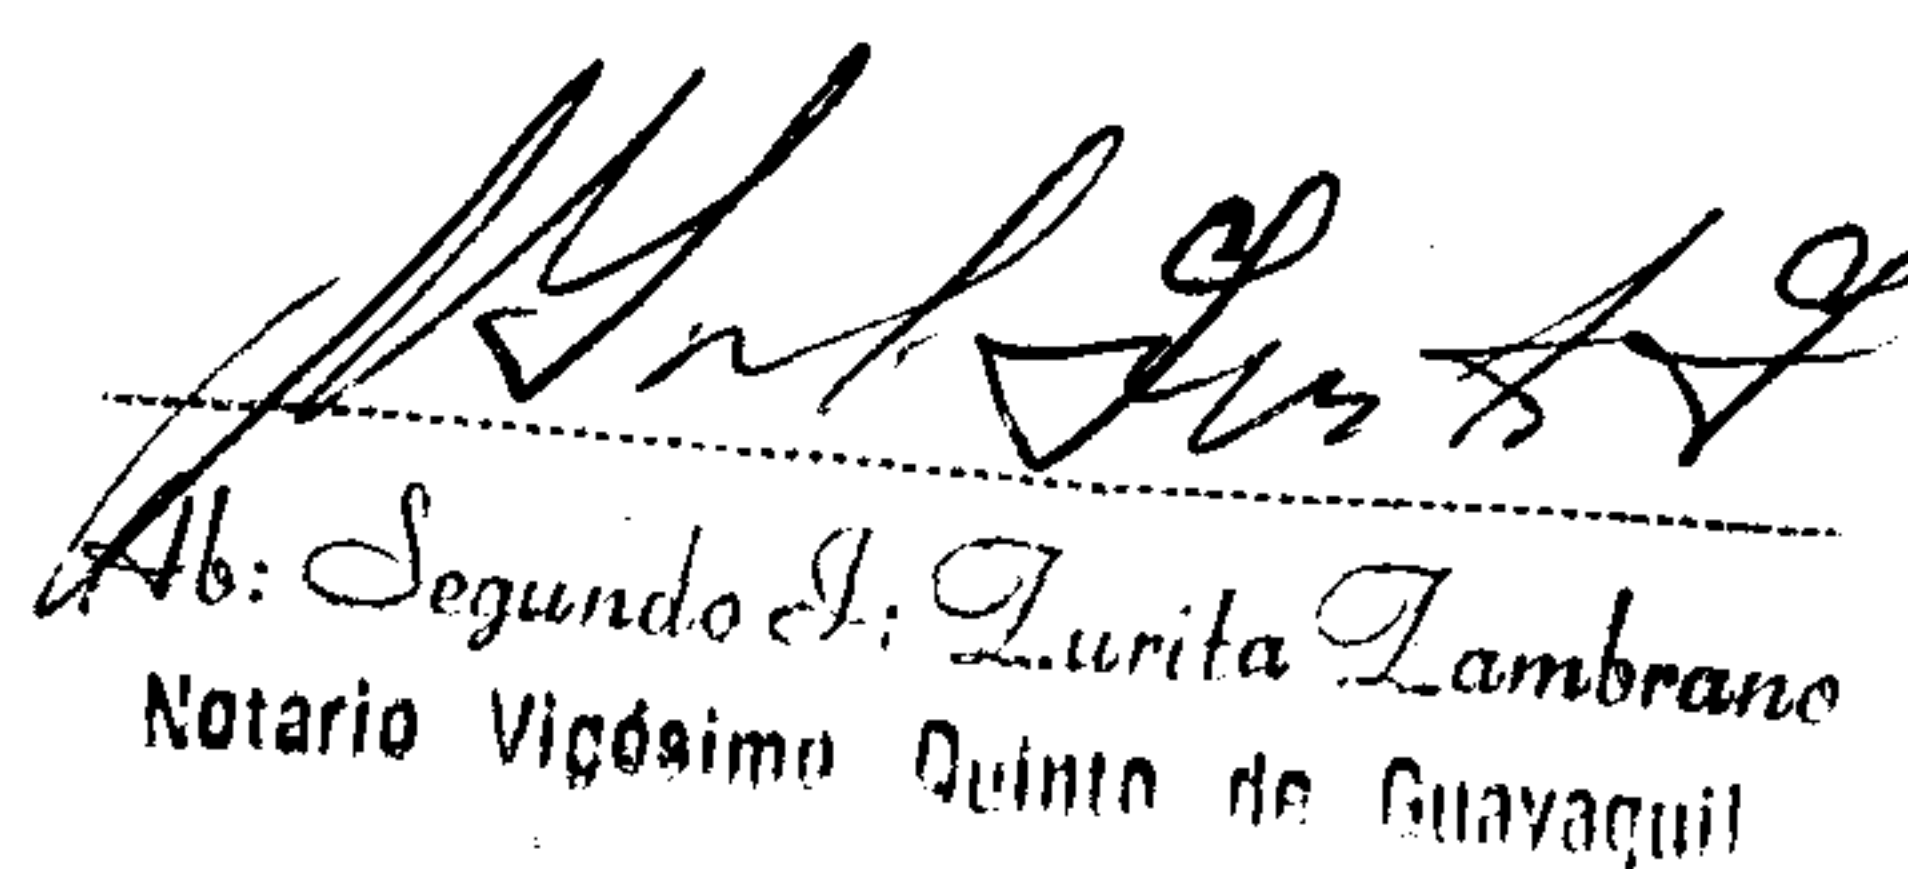 Ab: Segundo I: Zurita Zambrano
Notario Vigésimo Quinto de Guayaquil